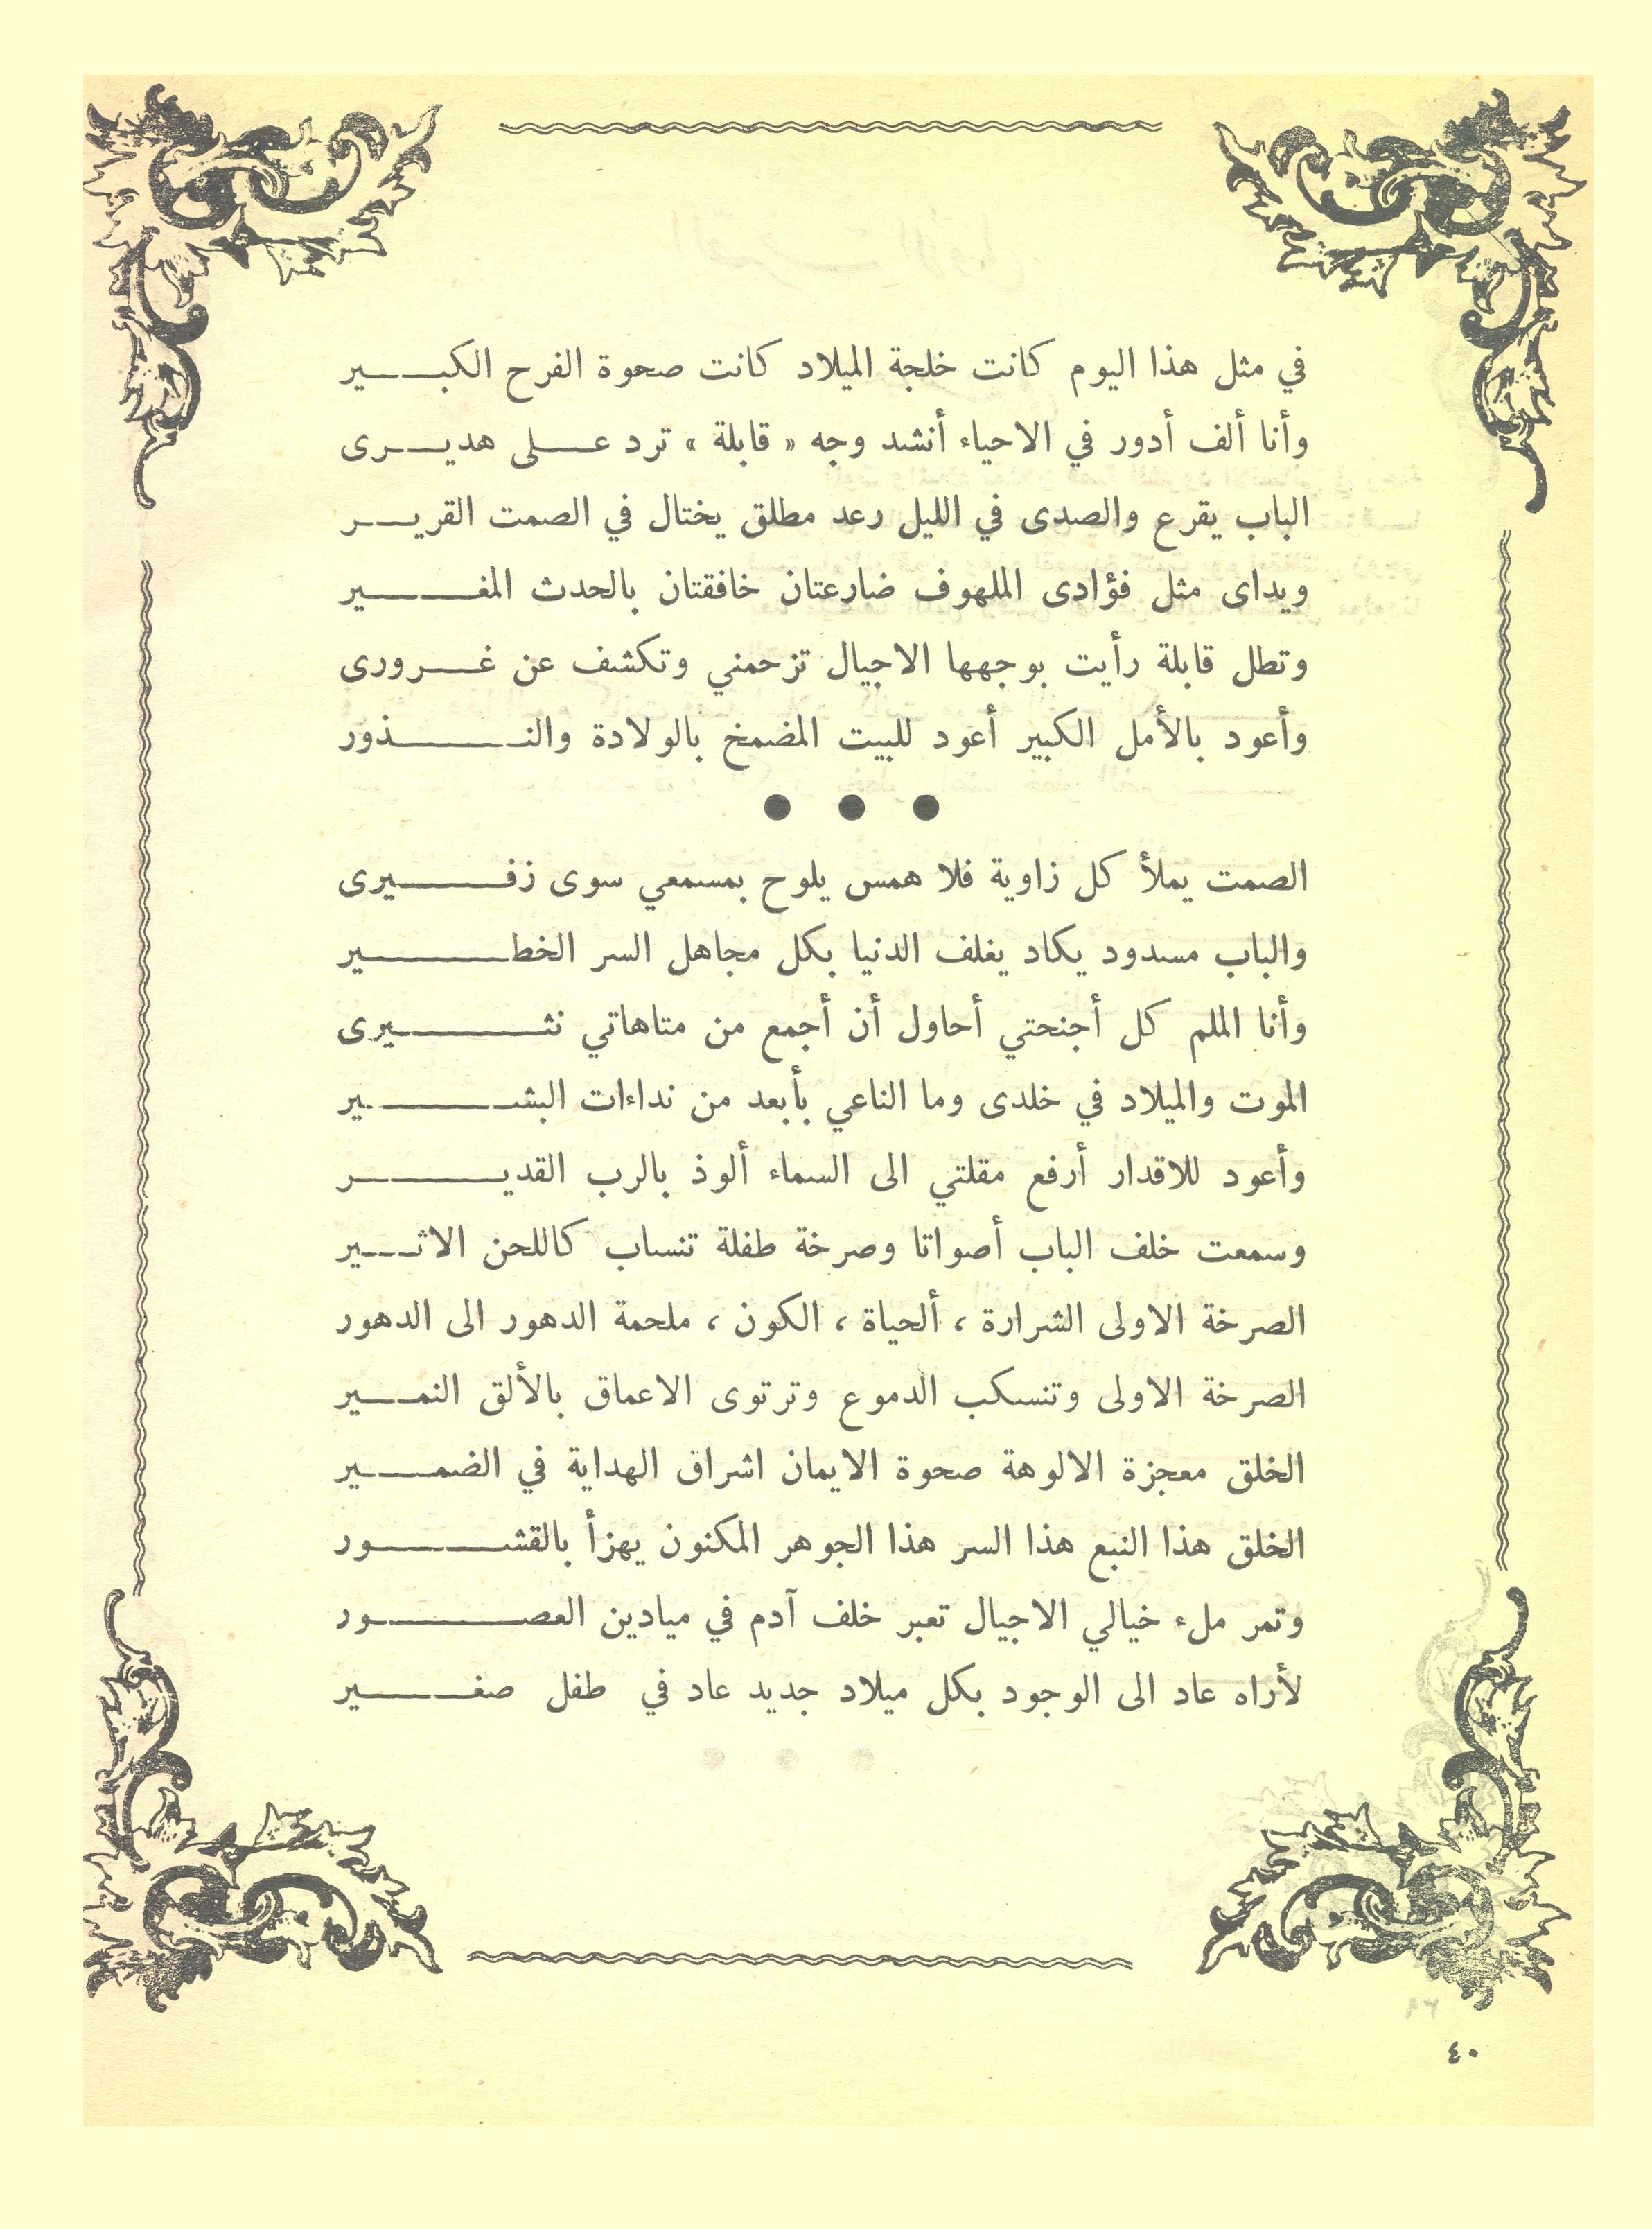 في مثل هذا اليوم كانت خلجة الميلاد كانت صحوة الفرح الكبـــير
وأنا ألف أدور في الاحياء أنشد وجه « قابلة » ترد عـــلى هديـــرى
الباب يقرع والصدى في الليل رعد مطلق يختال في الصمت القريـــر
ويداى مثل فؤادى الملهوف ضارعتان خافقتان بالحدث المغـــــير
وتطل قابلة رأيت بوجهها الاجيال تزحمني وتكشف عن غـــرورى
وأعود بالأمل الكبير أعود للبيت المضمخ بالولادة والنـــــــذور
● ● ●
الصمت يملأ كل زاوية فلا همس يلوح بمسمعي سوى زفـــــيرى
والباب مسدود يكاد يغلف الدنيا بكل مجاهل السر الخطـــــــير
وأنا الملم كل أجنحتي أحاول أن أجمع من متاهاتي نثـــــــيرى
الموت والميلاد في خلدى وما الناعي بأبعد من نداءات البشــــــير
وأعود للاقدار أرفع مقلتي الى السماء ألوذ بالرب القديـــــــر
وسمعت خلف الباب أصواتا وصرخة طفلة تنساب كاللحن الاثـــير
الصرخة الاولى الشرارة ، ألحياة ، الكون ، ملحمة الدهور الى الدهور
الصرخة الاولى وتنسكب الدموع وترتوى الاعماق بالألق النمـــير
الخلق معجزة الالوهة صحوة الايمان اشراق الهداية في الضمـــير
الخلق هذا النبع هذا السر هذا الجوهر المكنون يهزأ بالقشـــــــور
وتمر ملء خيالي الاجيال تعبر خلف آدم في ميادين العصـــــــور
لأراه عاد الى الوجود بكل ميلاد جديد عاد في طفل صغـــــير
٤٠